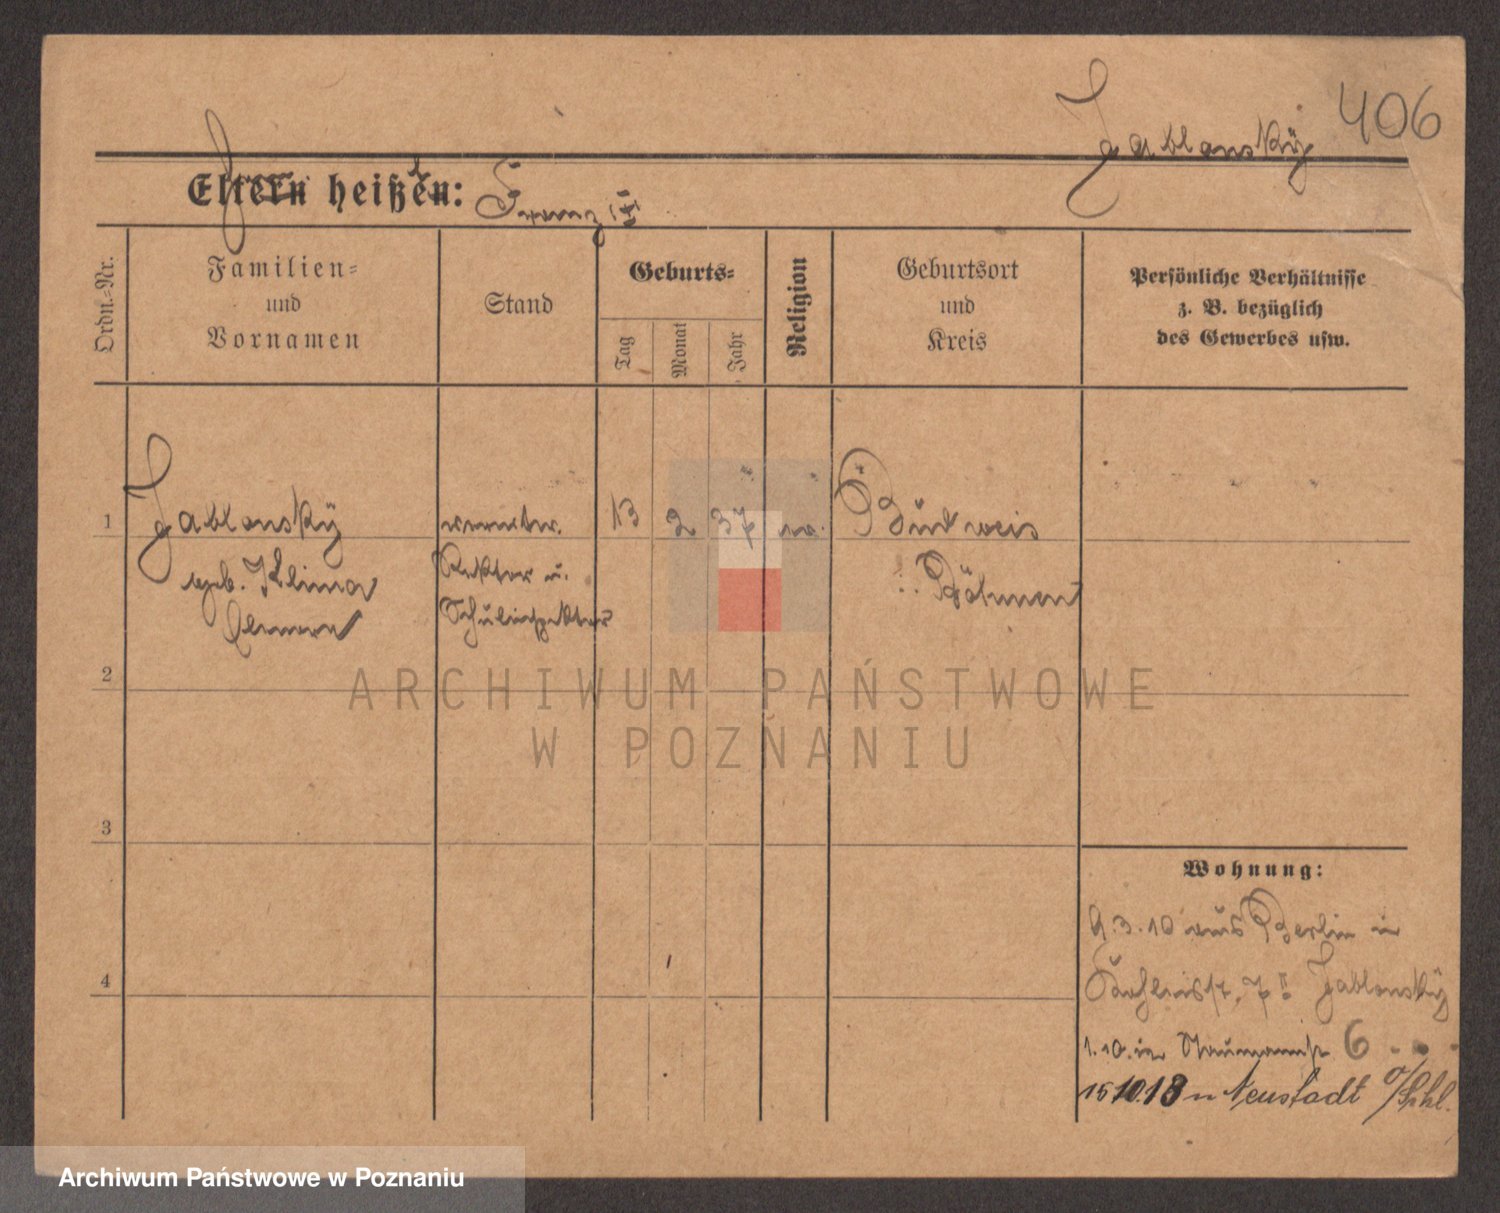 406
Jablonsky
Eltern heißen:
Ordn.-Nr.
Familien-
und
Vornamen
Stand
Geburts-
Tag
Monat
Jahr
Religion
Geburtsort
und
Kreis
Persönliche Verhältnisse
z. B. bezüglich
des Gewerbes usw.
1
Jablonský
verwitw.
13
2
37
Budweis
geb. Klima
Rektor u.
Böhmen
Schulinspektor
2
ARCHIWUM PAŃSTWOWE
W POZNANIU
3
Wohnung:
9.3.10 aus Berlin in
7 II Jablonský
4
1.10. in Naumannstr 6
15 10.18 n Neustadt o/Schl.
Archiwum Państwowe w Poznaniu